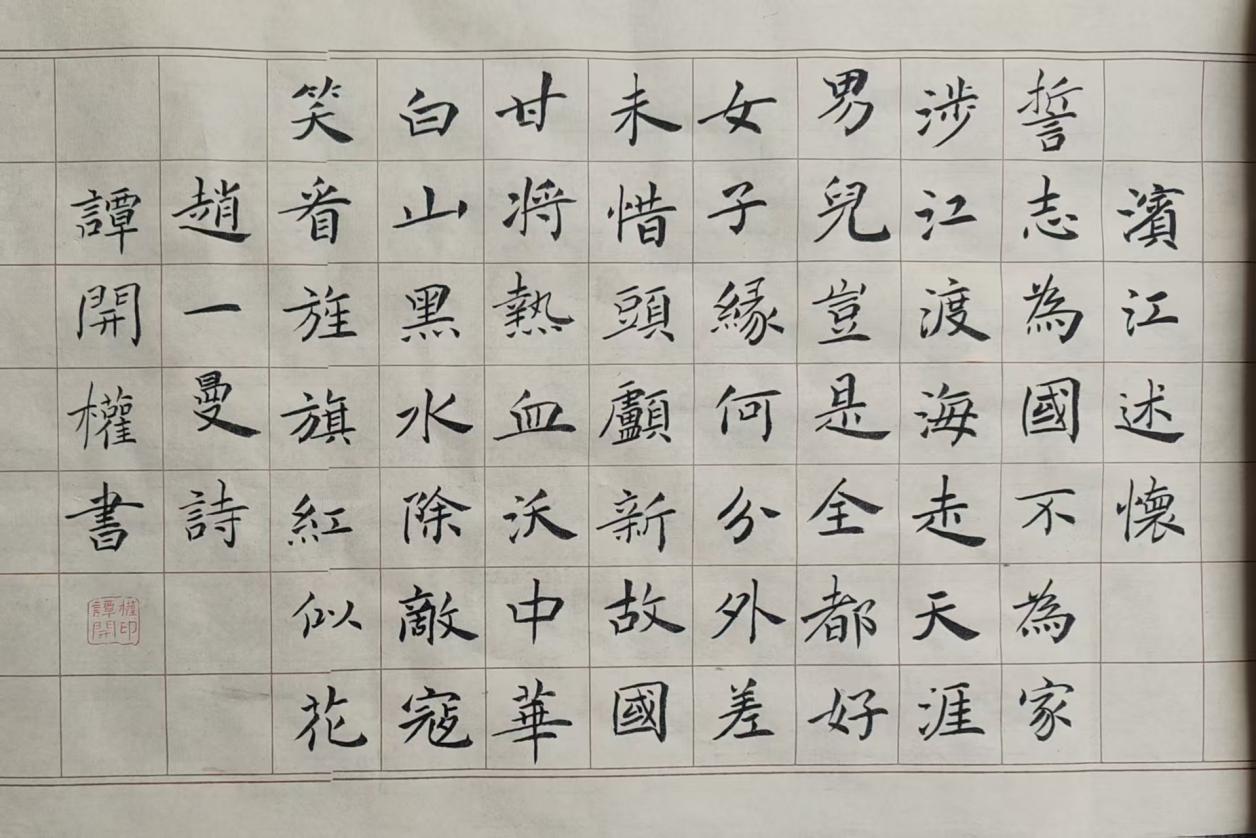 濱江述懷
誓志為國不為家
涉江渡海走天涯
男兒豈是全都好
女子緣何分外差
未惜頭顱新故國
甘将熱血沃中華
白山黑水除敵寇
笑看旌旗紅似花
趙一曼詩
譚開權書
權印
譚開